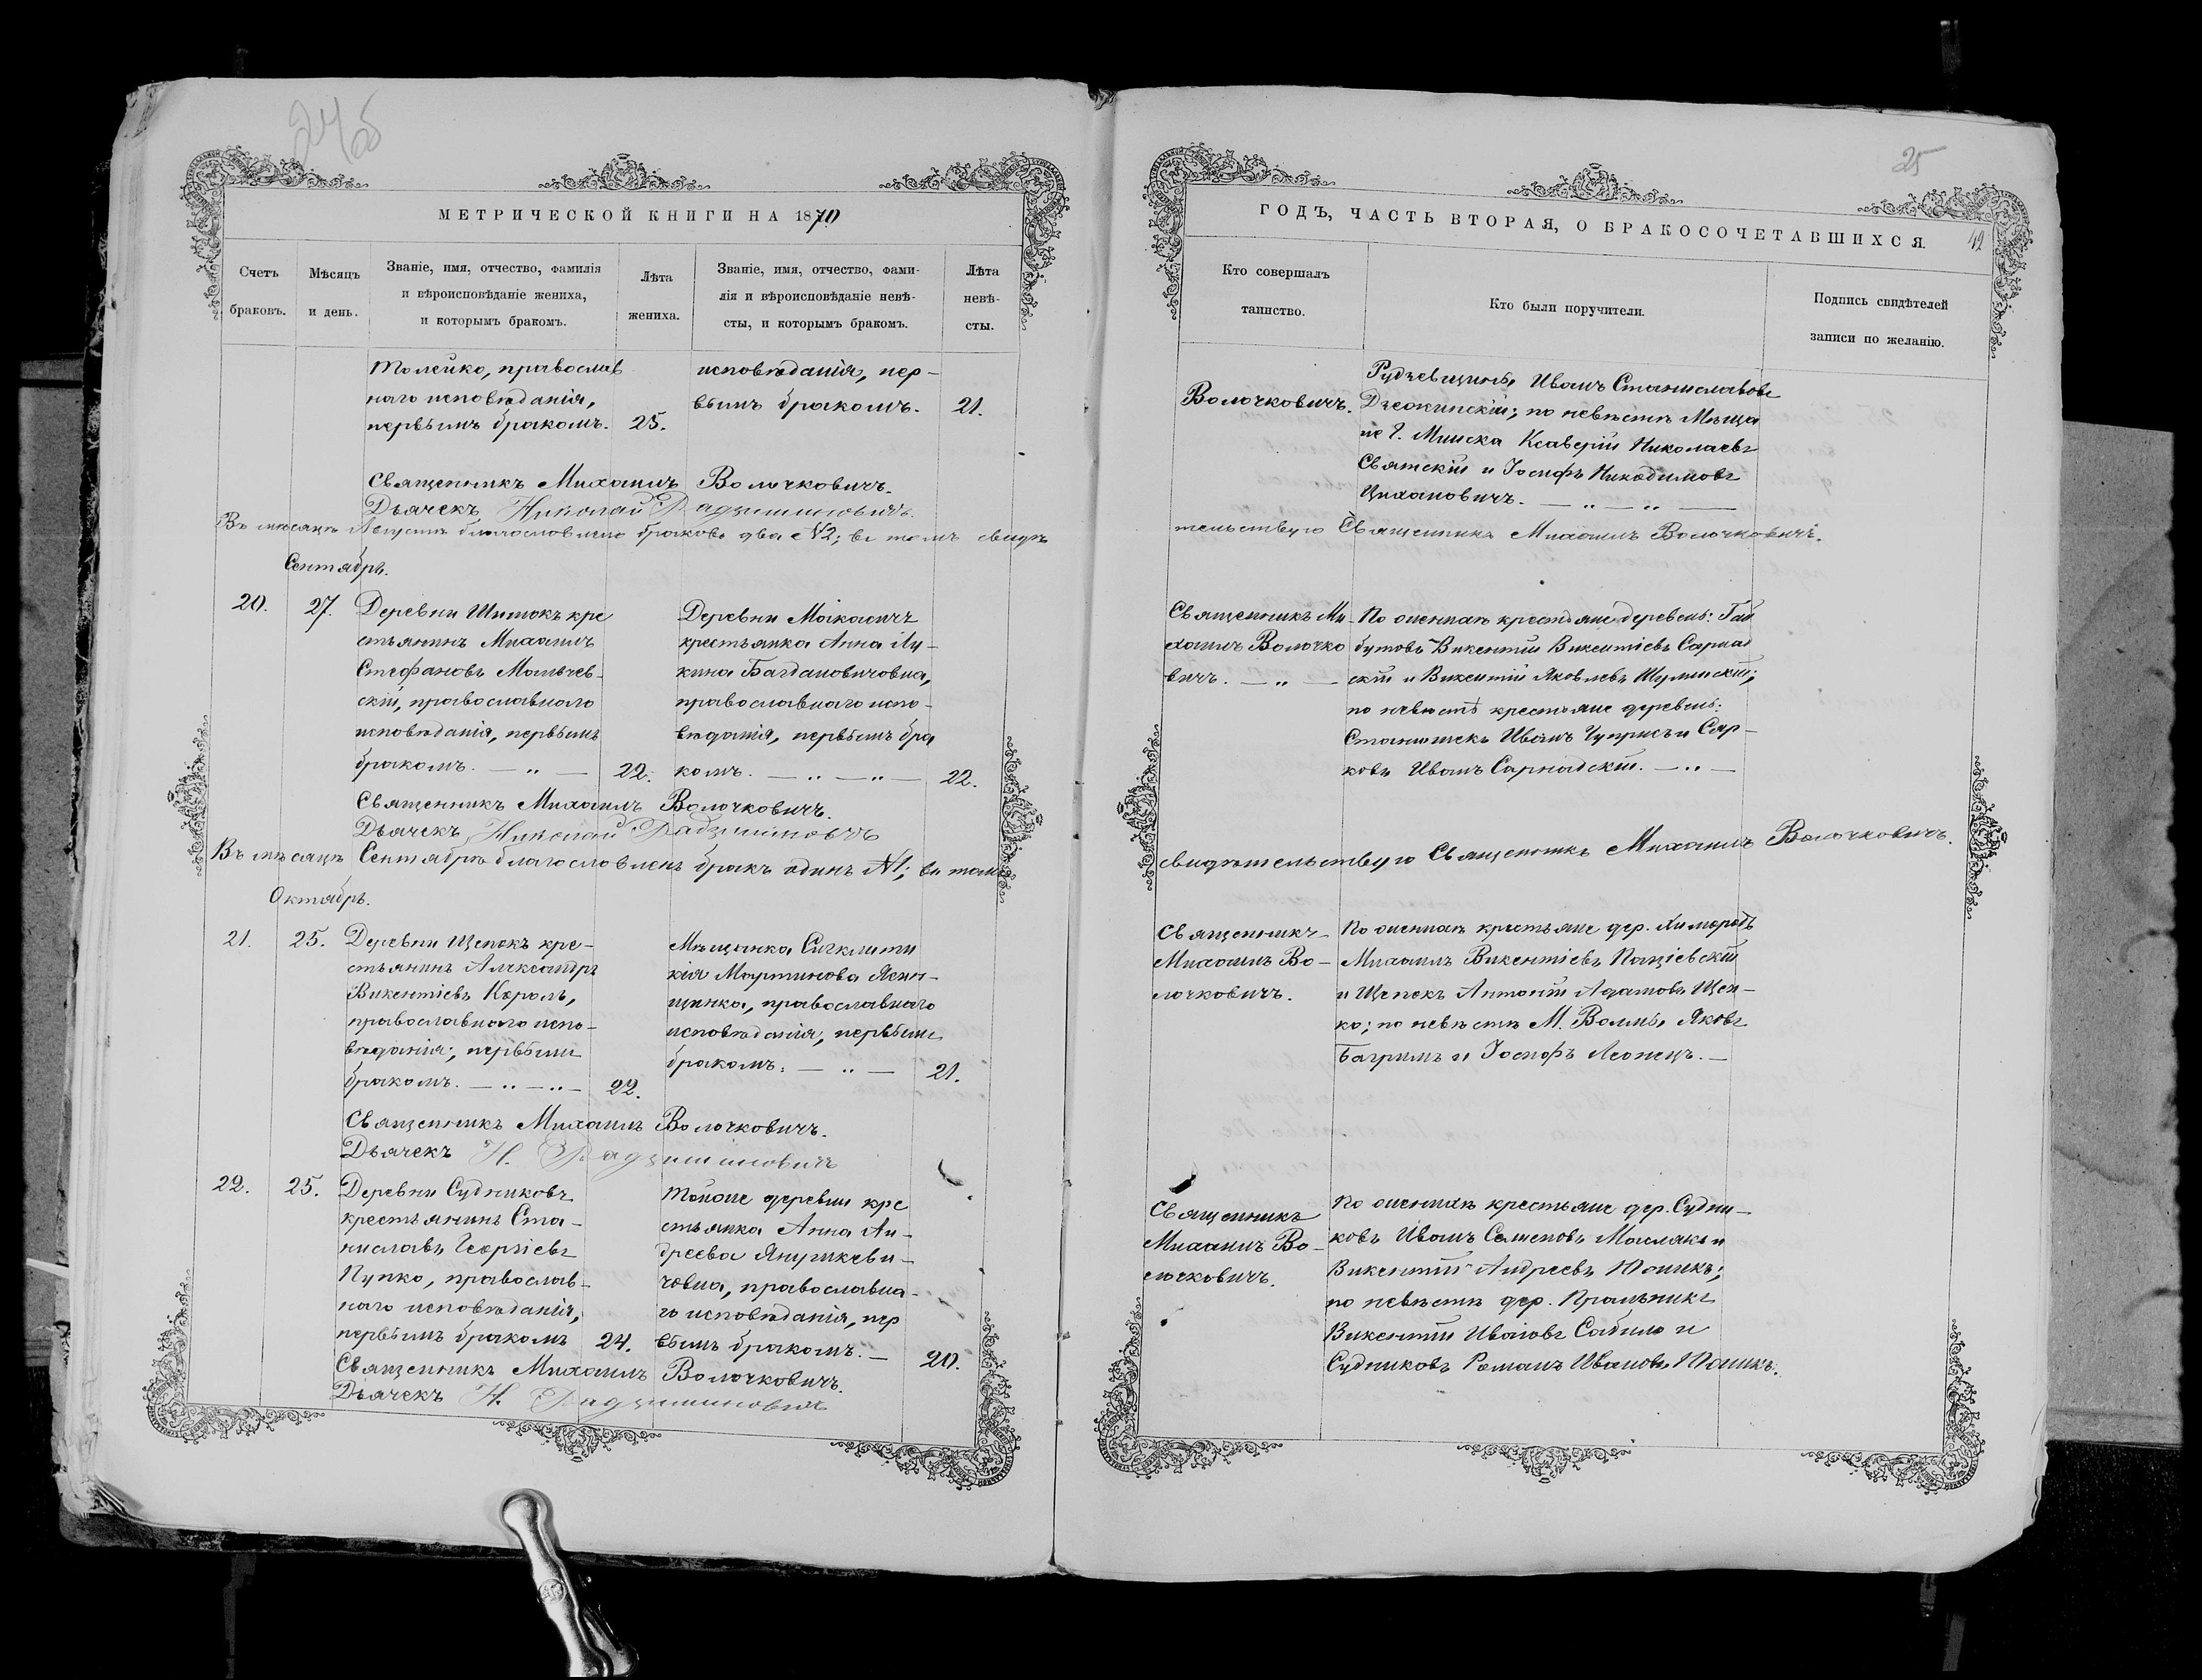 24об
МЕТРИЧЕСКОЙ КНИГИ НА 1870
Счетъ браковъ.
Мѣсяцъ и день.
Званіе, имя, отчество, фамилія
и вѣроисповѣданіе жениха,
и которымъ бракомъ.
Лѣта
жениха.
Званіе, имя, отчество, фами-
лія и вѣроисповѣданіе невѣ-
сты, и которымъ бракомъ.
Лѣта
невѣ-
сты.
Толейко, православ
наго исповѣданія,
первымъ бракомъ. 25.
исповѣданія, пер-
вымъ бракомъ. 21.
Священникъ Михаилъ Волочковичъ.
Дьячекъ Николай Радзиминовичъ
Въ мѣсяцѣ Августѣ благословлено браковъ два №2; въ томъ свидѣ
Сентябрь.
20. 27.
Деревни Шипокъ кре
стьянинъ Михаилъ
Стефановъ Мальчев-
скій, православнаго
исповѣданія, первымъ
бракомъ. — „ — 22.
Деревни
крестьянка Анна Лу-
кина Багдановичовна,
православнаго испо-
вѣданія, первымъ бра
комъ. — „ — „ — 22.
Священникъ Михаилъ Волочковичъ.
Дьячекъ Николай Радзиминовичъ
Въ мѣсяцѣ Сентябрѣ благословленъ бракъ одинъ №1; въ томъ
Октябрь.
21. 25.
Деревни Щепокъ кре-
стьянинъ Александръ
Викентіевъ Король,
православнаго испо-
вѣданія, первымъ
бракомъ. — „ — „ — 22.
Мѣщанка Сигклити
кія Мартинова Ясин-
щинка, православнаго
исповѣданія, первымъ
бракомъ. — „ — 21.
Священникъ Михаилъ Волочковичъ.
Дьячекъ Н. Радзиминовичъ
22. 25.
Деревни Судниковъ
крестьянинъ Ста-
ниславъ Георгіевъ
Пупко, православ-
наго исповѣданія,
первымъ бракомъ 24.
Тойже деревни кре
стьянка Анна Ан-
дреева Янушкеви-
човна, православна-
го исповѣданія, пер
вымъ бракомъ. — 20.
Священникъ Михаилъ Волочковичъ.
Дьячекъ Н. Радзиминовичъ
25
ГОДЪ, ЧАСТЬ ВТОРАЯ, О БРАКОСОЧЕТАВШИХСЯ.
42
Кто совершалъ
таинство.
Кто были поручители.
Подпись свидѣтелей
записи по желанію.
Волочковичъ.
Рудзевщины Иванъ Станиславовъ
по невѣстѣ Мѣща
не Г. Минска Ксаверій Николаевъ
Святскій и Іосифъ Никодимовъ
Цихановичъ. — „ — „ —
тельствую Священникъ Михаилъ Волочковичъ.
Священникъ Ми-
хаилъ Волочко
вичъ. — „ —
По женихѣ крестьяне деревень: Гай
бутовъ Викентій Викентіевъ Сарнад
скій и Викентій Яковлевъ Шуминскій;
по невѣстѣ крестьяне деревень:
Станюшекъ Иванъ Чуприсъ и Сар-
ковъ Иванъ Сарнадскій. — „ —
свидѣтельствую Священникъ Михаилъ Волочковичъ.
Священникъ
Михаилъ Во-
лочковичъ.
По женихѣ крестьяне дер. Химородъ
Михаилъ Викентіевъ Пацѣевскій
и Щепекъ Антоній Адамовъ Щеп-
ко; по невѣстѣ М. Волмы Яковъ
Багримъ и Іосифъ Леонецъ. —
Священникъ
Михаилъ Во-
лочковичъ.
По женихѣ крестьяне дер. Судни-
ковъ Иванъ Семеновъ Маслякъ и
Викентій Андреевъ Юшикъ;
по невѣстѣ дер. Пральники
Викентій Ивановъ Сабило и
Судниковъ Романъ Ивановъ Юшикъ.